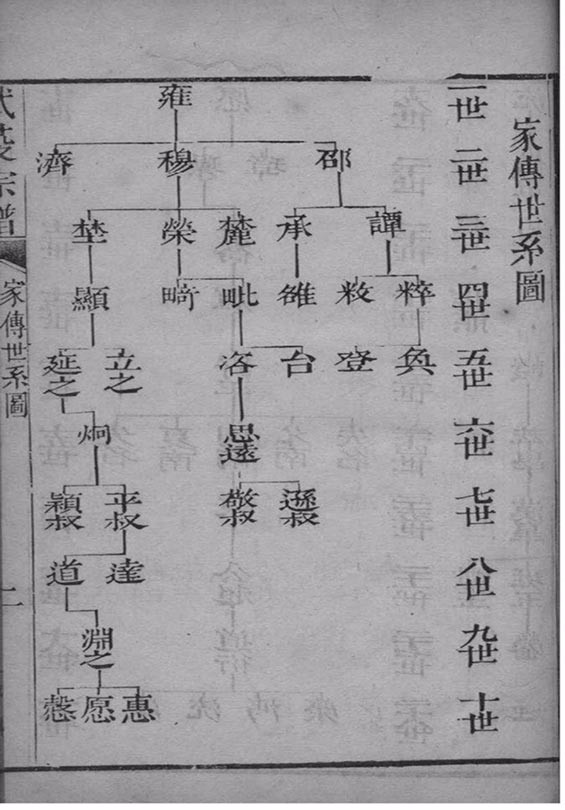 家傳世系圖
一世 二世 三世 四世 五世 六世 七世 八世 九世 十世
雍
邵 穆 濟
譚 承 麓 榮 埜
粹 敉 雒 毗 畸 顯
奐 登 台 洛 立之 延之
思遠 炯
遜叔 敬叔 平叔 穎叔
達 道
淵之
惠 愿 慤
宗譜
家傳世系圖
二